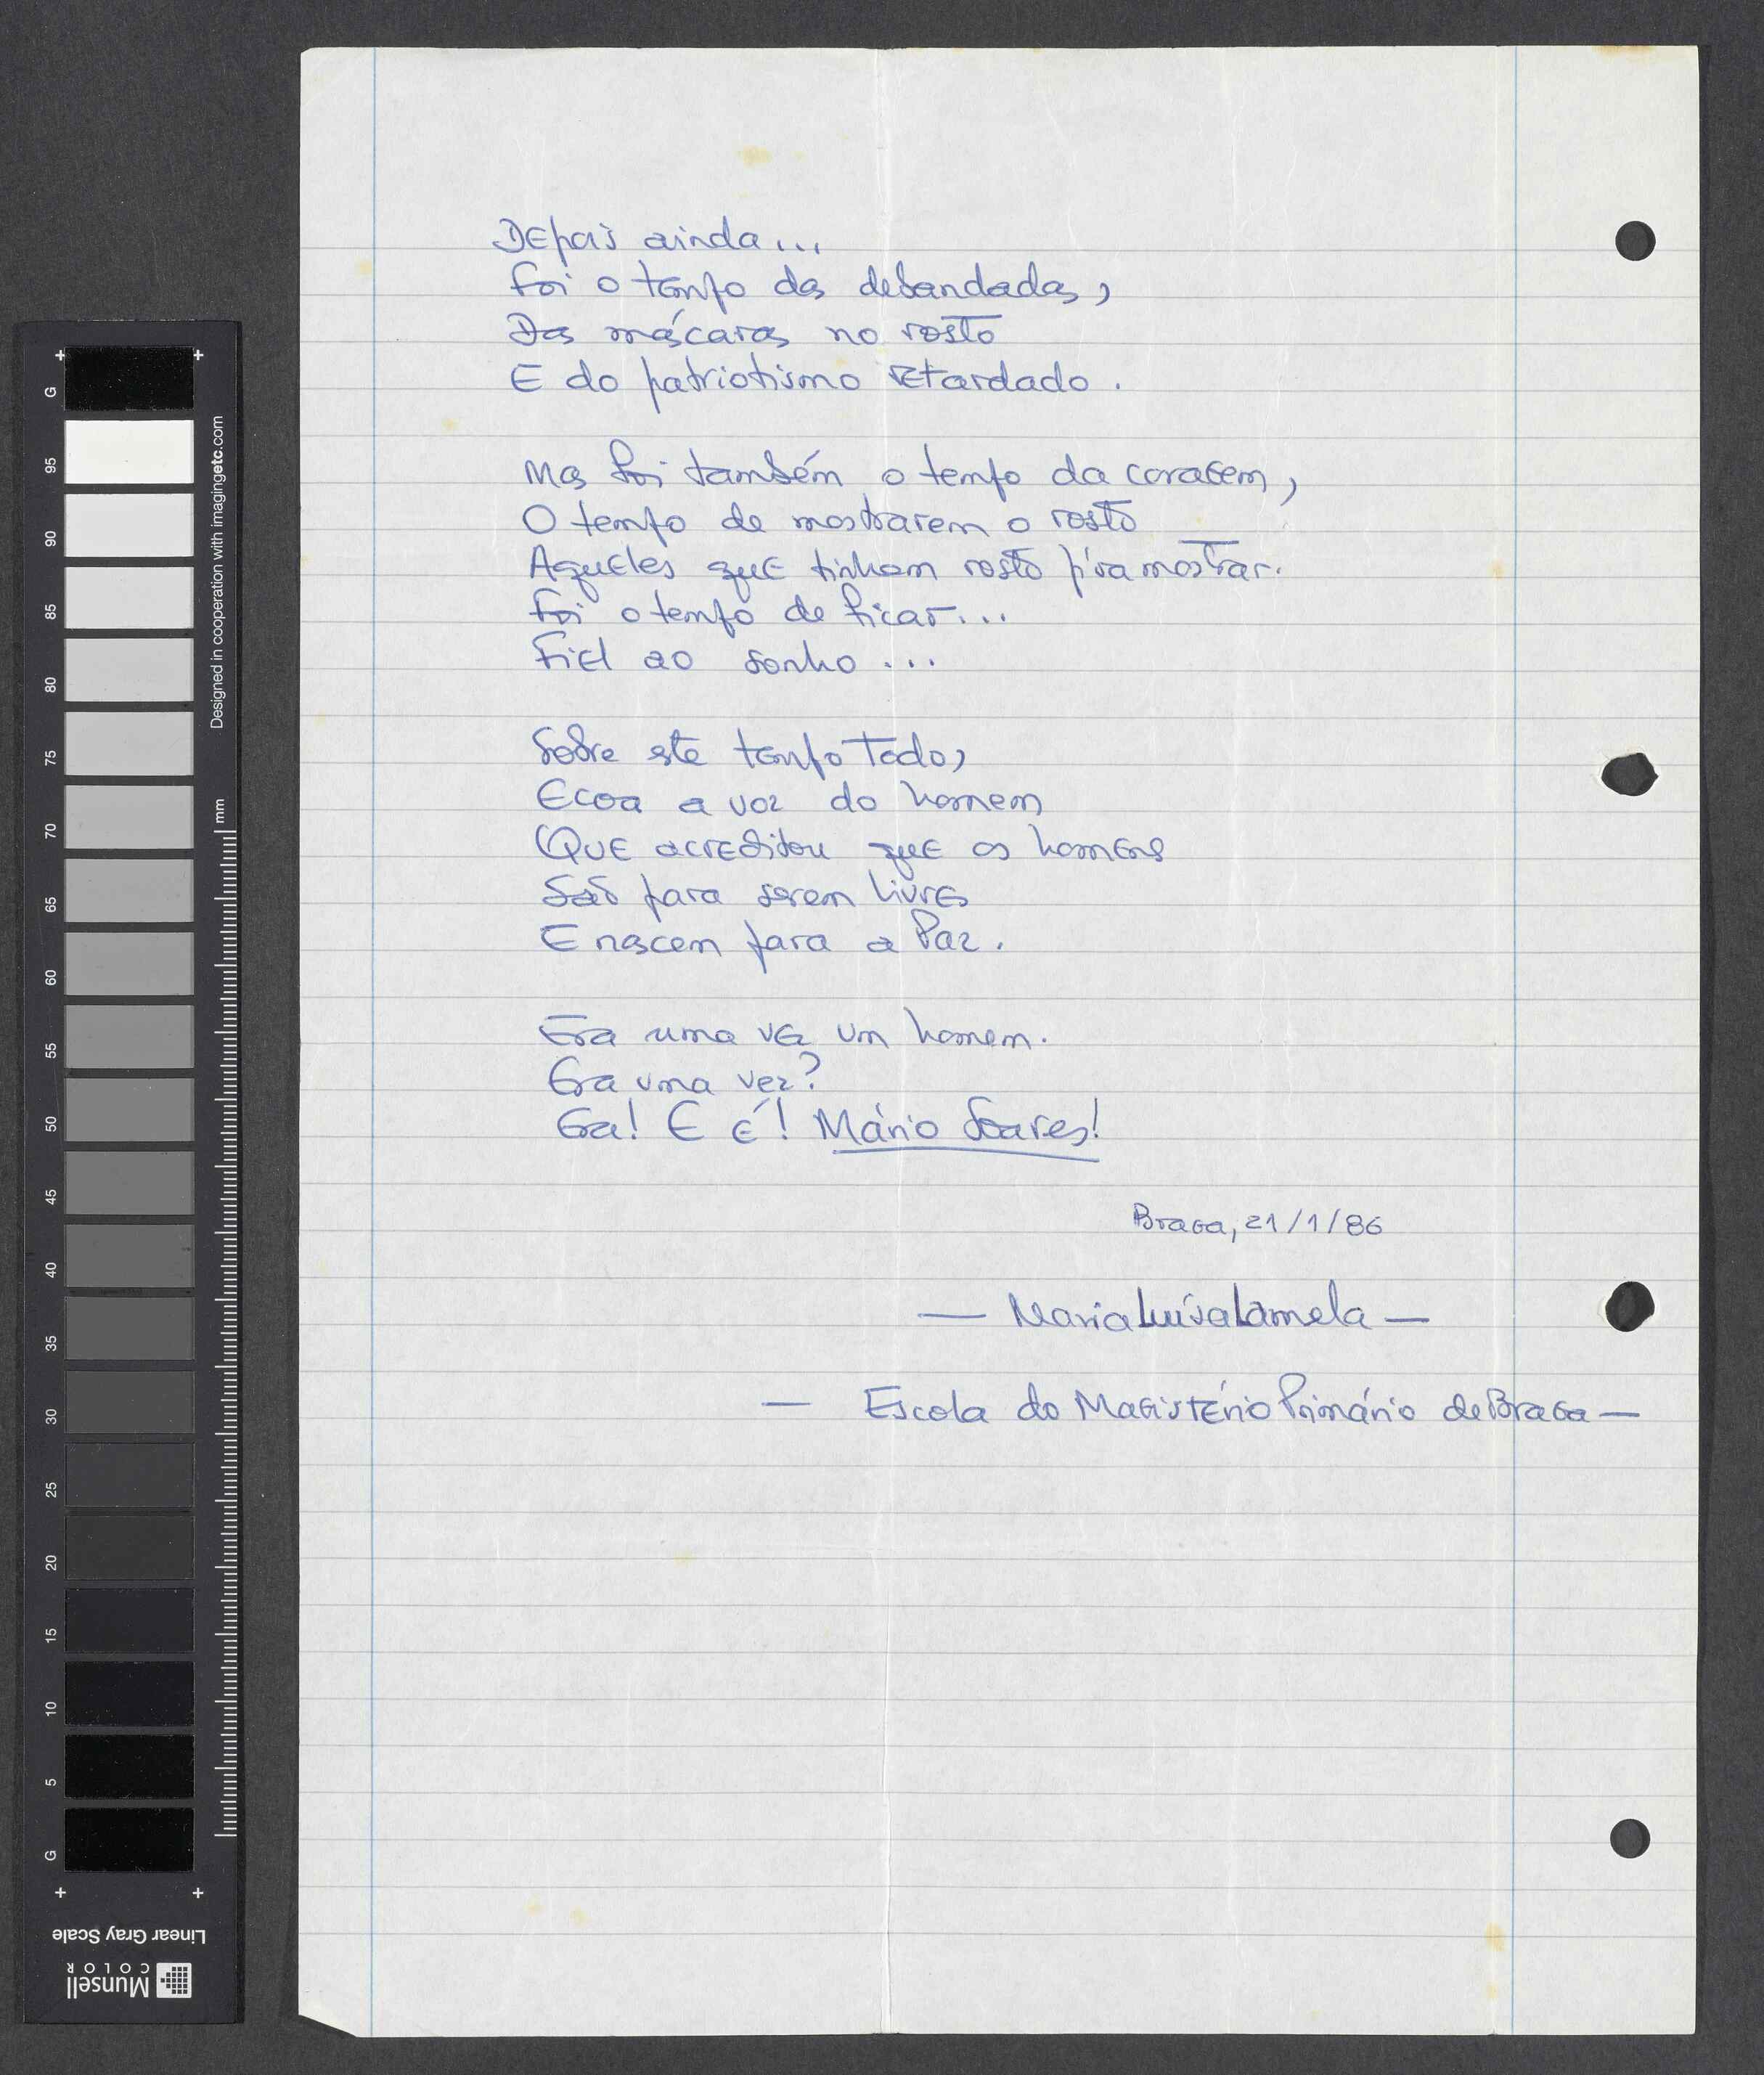 Depois ainda...
Foi o tempo das debandadas,
Das máscaras no rosto
E do patriotismo retardado.
Mas foi também o tempo da coragem,
O tempo de mostrarem o rosto
Aqueles que tinham rosto p'ra mostrar.
Foi o tempo de ficar...
Fiel ao sonho...
Sobre este tempo todo,
Ecoa a voz do homem
Que acreditou que os homens
São para serem livres
E nascem para a Paz.
Era uma vez um homem.
Era uma vez?
Era! E é! Mário Soares!
Braga, 21/1/86
— Maria Luísa Lamela —
— Escola do Magistério Primário de Braga —
G
95
90
85
80
75
70
65
60
55
50
45
40
35
30
25
20
15
10
5
G
Designed in cooperation with imagingetc.com
mm
Linear Gray Scale
Munsell
COLOR